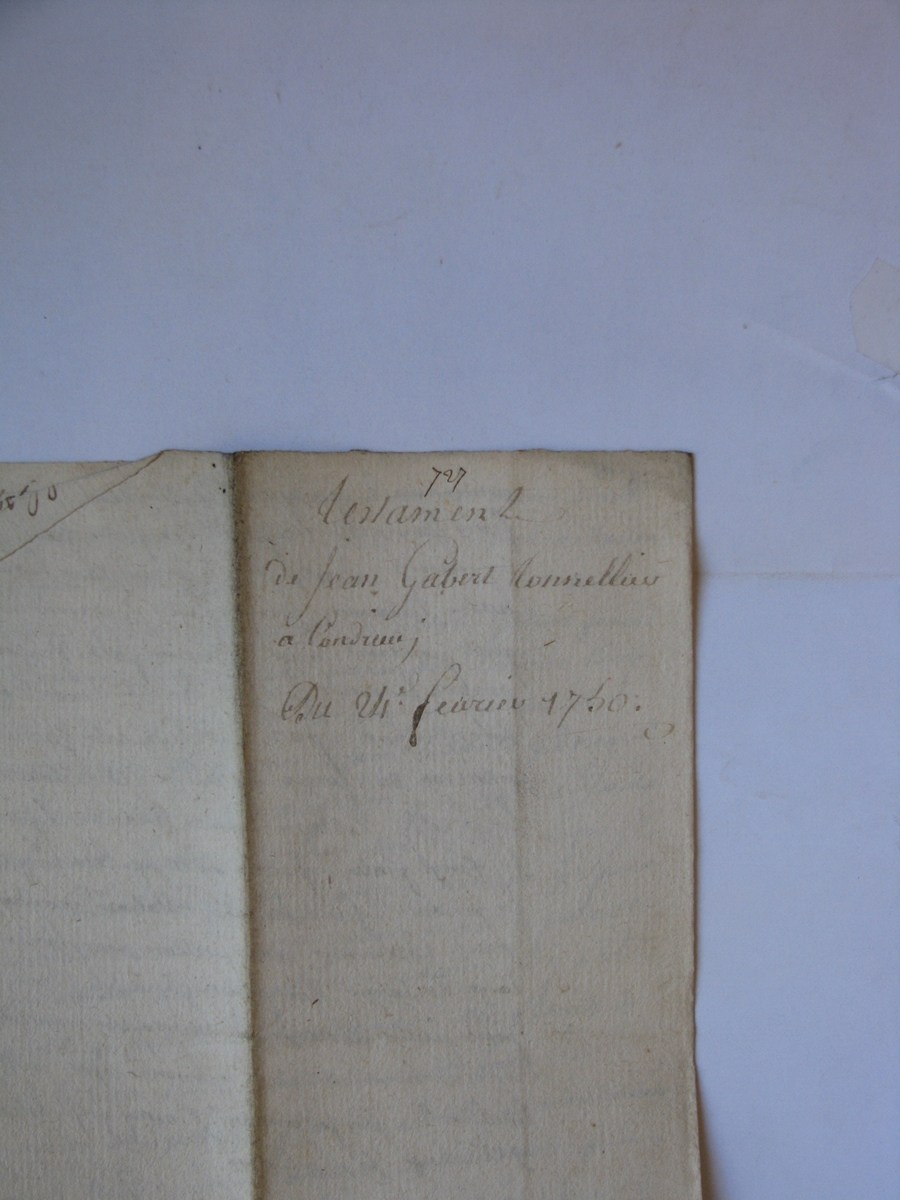 727
testament
de Jean Gabert tonnellier
a Condrieu
Du 24e feuvrier 1750.